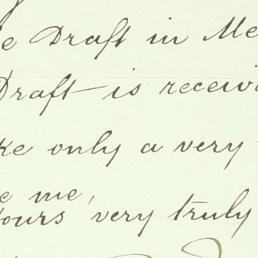 e Draft in Me
Draft is receiv
ke only a very
e me,
Yours very truly,